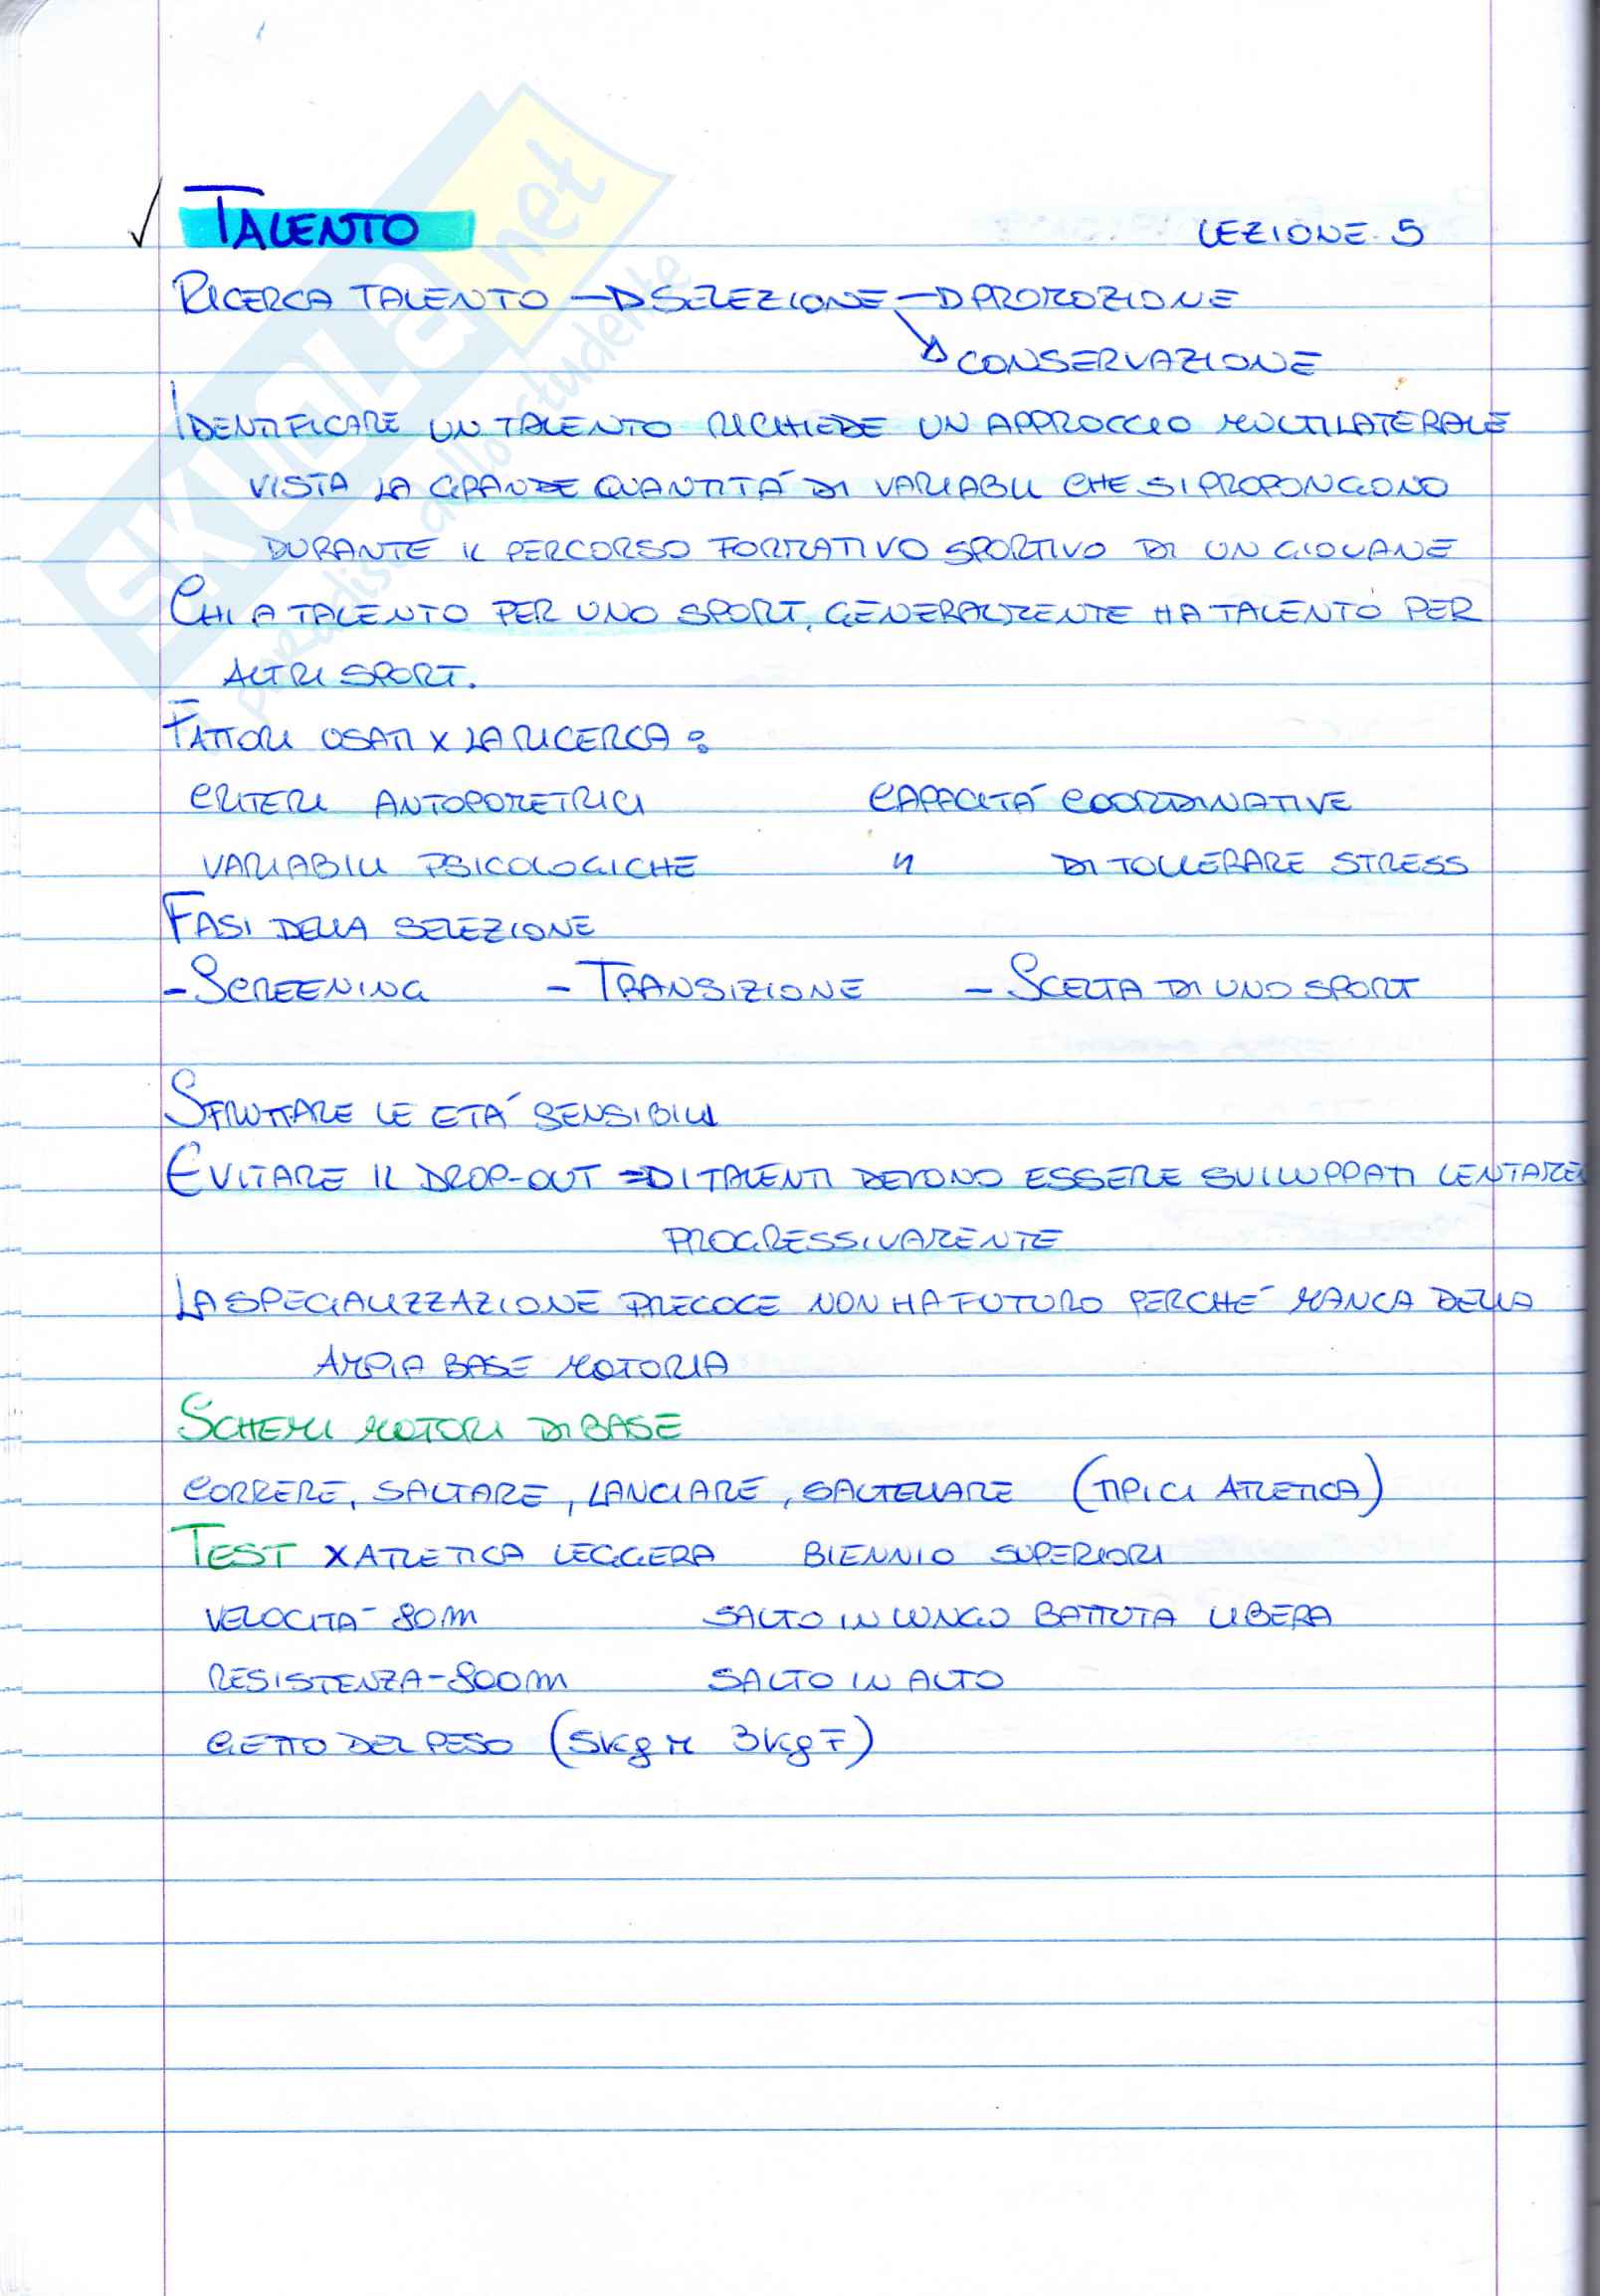 TALENTO LEZIONE 5
RICERCA TALENTO → SELEZIONE → PROMOZIONE
→ CONSERVAZIONE
IDENTIFICARE UN TALENTO RICHIEDE UN APPROCCIO MULTILATERALE
VISTA LA GRANDE QUANTITÀ DI VARIABILI CHE SI PROPONGONO
DURANTE IL PERCORSO FORMATIVO SPORTIVO DI UN GIOVANE
CHI A TALENTO PER UNO SPORT, GENERALMENTE HA TALENTO PER
ALTRI SPORT.
FATTORI USATI X LA RICERCA:
CRITERI ANTOPOMETRICI CAPACITÀ COORDINATIVE
VARIABILI PSICOLOGICHE " DI TOLLERARE STRESS
FASI DELLA SELEZIONE
- SCREENING - TRANSIZIONE - SCELTA DI UNO SPORT
SFRUTTARE LE ETÀ SENSIBILI
EVITARE IL DROP-OUT ⇒ I TALENTI DEVONO ESSERE SVILUPPATI
PROGRESSIVAMENTE
LA SPECIALIZZAZIONE PRECOCE NON HA FUTURO PERCHÉ MANCA DELLA
AMPIA BASE MOTORIA
SCHEMI MOTORI DI BASE
CORRERE, SALTARE, LANCIARE, SALTELLARE (TIPICI ATLETICA)
TEST X ATLETICA LEGGERA BIENNIO SUPERIORI
VELOCITA - 80m SALTO IN LUNGO BATTUTA LIBERA
RESISTENZA - 800m SALTO IN ALTO
GETTO DEL PESO (5kg M 3kg F)
SKUOLA.net
il paradiso dello studente